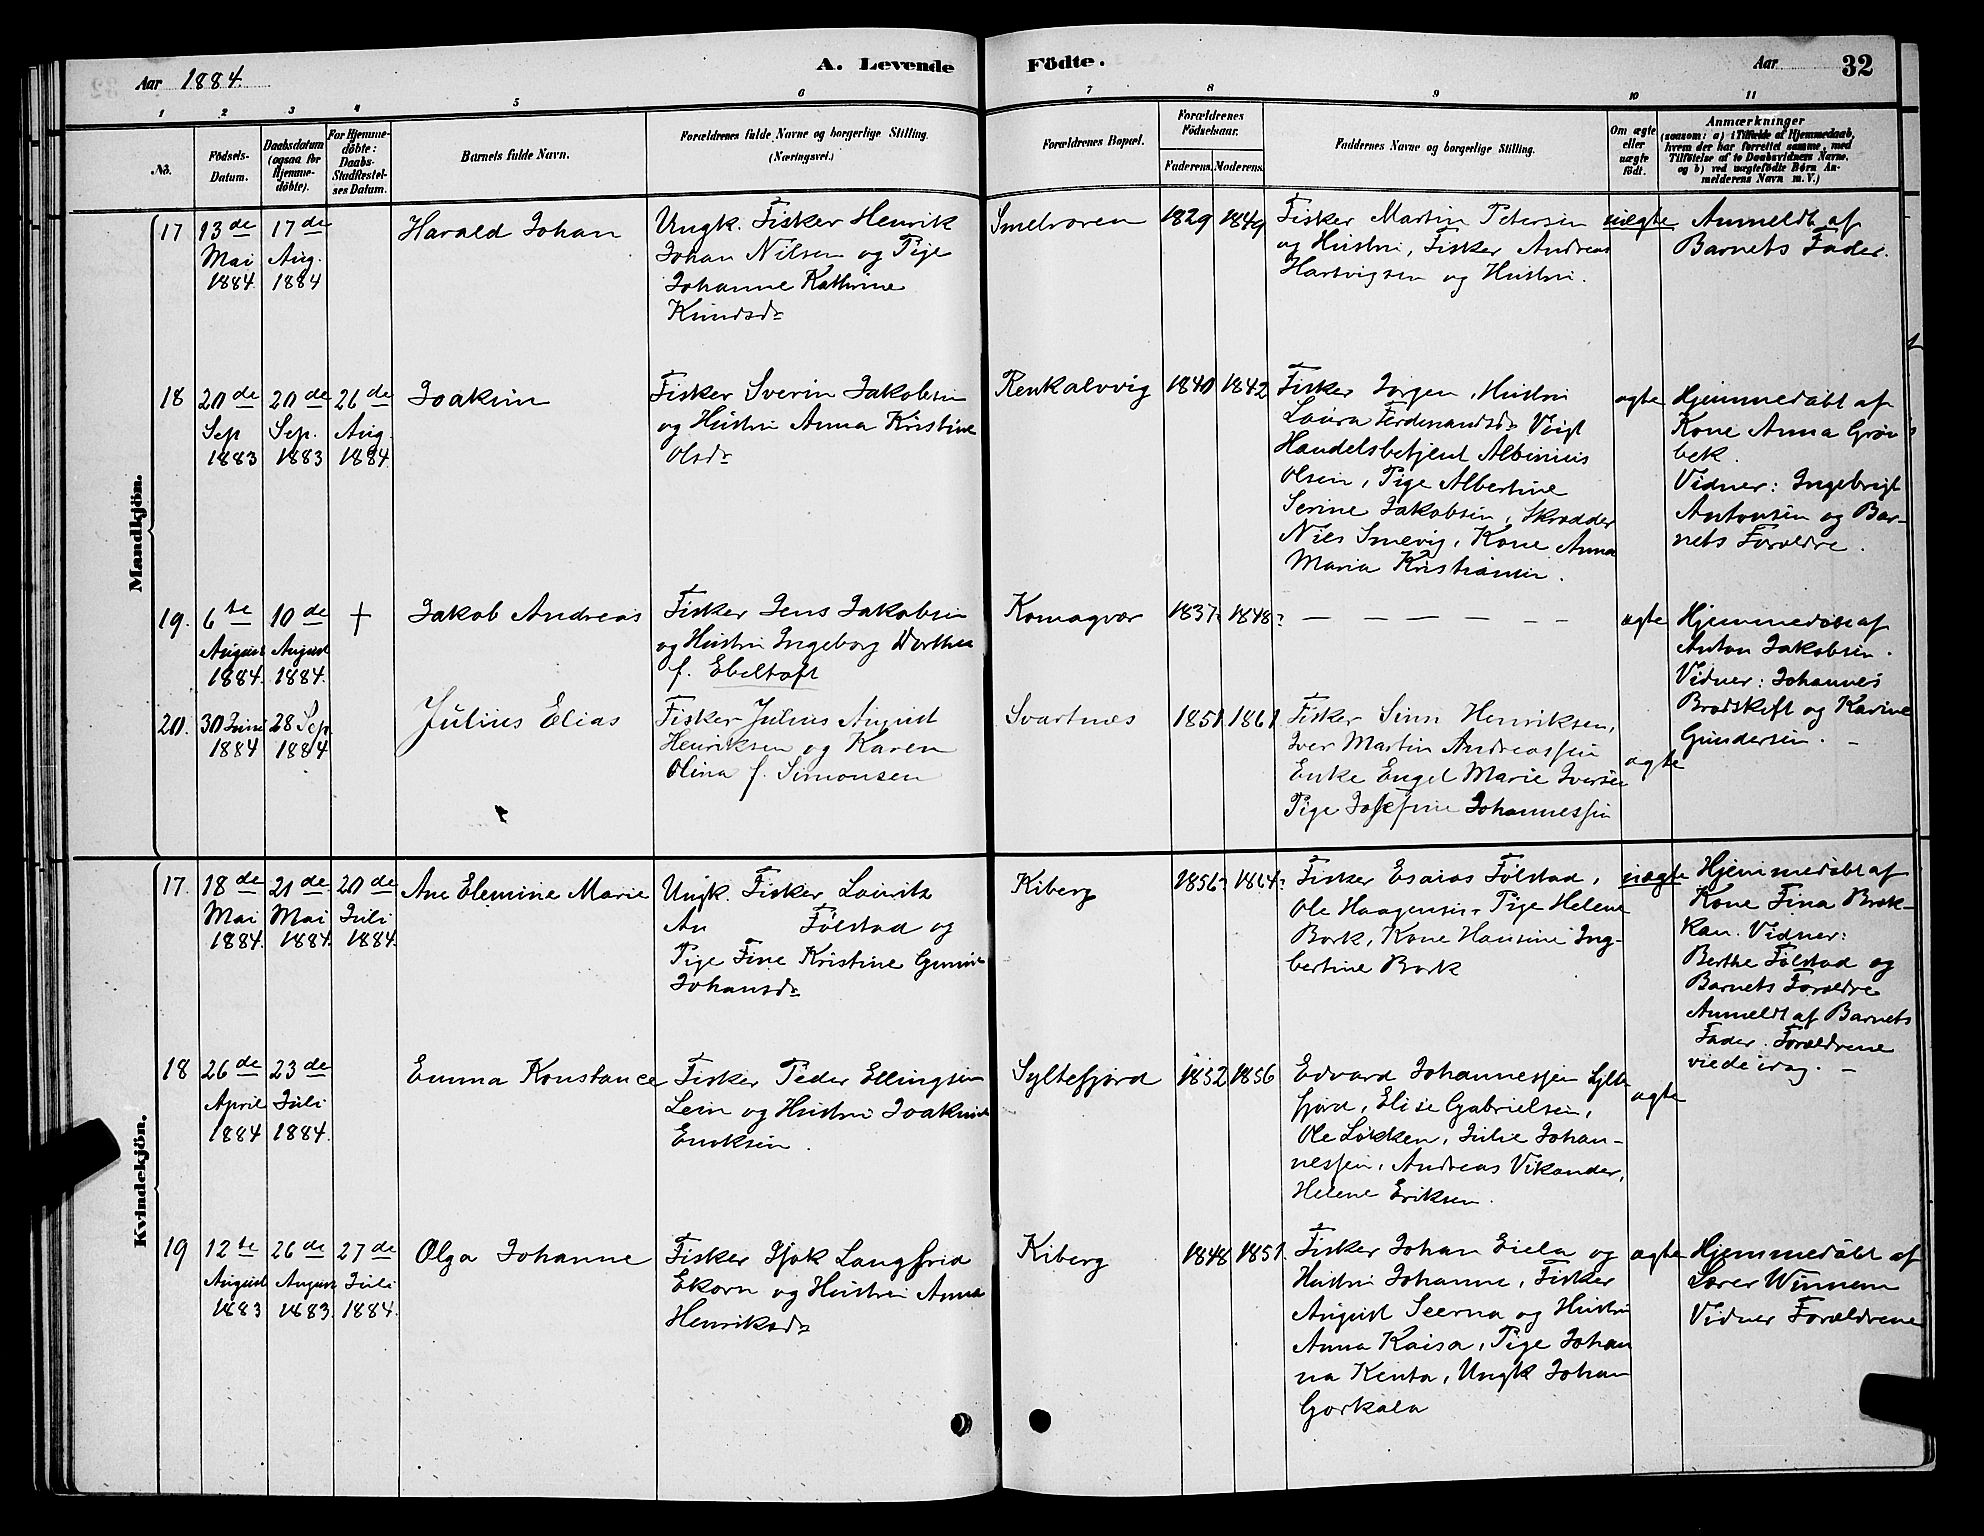 Aar 1884.
A. Levende
Födte.
Aar
32
1 2 3 4 5 6 7 8 9 10 11
No.
Födsels-
Datum.
Daabsdatum
(ogsaa for
Hjemme-
döbte).
For Hjemme-
döbte:
Daabs-
Stadfæstel-
ses Datum.
Barnets fulde Navn.
Forældrenes fulde Navne og borgerlige Stilling.
(Næringsvei.)
Forældrenes Bopæl.
Forældrenes
Födselsaar.
Faderens.
Moderens.
Faddernes Navne og borgerlige Stilling.
Om ægte
eller
uægte
födt.
Anmærkninger
(saasom: a) i Tilfælde af Hjemmedaab,
hvem der har forrettet samme, med
Tilföielse af to Daabsvidners Navne,
og b) ved uægtefödte Børn An-
melderens Navn m. V.)
Mandkjön.
17
13de
Mai
1884
17de
Aug.
1884
Harald Johan
Ungk. Fisker Henrik
Johan Nilsen og Pige
Johanne Kathrine
Knudsdr
Smelroren
1829
1849
Fisker Martin Petersen
og Hustru, Fisker Andreas
Hartvigsen og Hustru.
uægte
Anmeldt af
Barnets Fader.
18
20de
Sep
1883
20de
Sep.
1883
26de
Aug.
1884
Joakim
Fisker Sverin Jakobsen
og Hustru Anna Kristine
Olsdr
Renkalvvig
1840
1842
Fisker Jørgen, Hustru
Laura Ferdinandsdr Voigt
Handelsbetjent Albinius
Olsen, Pige Albertine
Serine Jakobsen, Skrædder
Nils Smevig, Kone Anna
Maria Kristiansen.
ægte
Hjemmedøbt af
Kone Anna Grøn
bek.
Vidner: Ingebrigt
Antonsen og Bar-
nets Forældre.
19.
6te
August
1884.
10de
August
1884.
+
Jakob Andreas
Fisker Jens Jakobsen
og Hustru Ingeborg Dorthea
f. Ebeltoft
Komagvær
1837?
1848?
— — — — — —
ægte
Hjemmedøbt af
Anton Jakobsen.
Vidner: Johannes
Brodskift og Karine
Gundersen. —
20.
30 Juni
1884
28 Sep.
1884
Julius Elias
Fisker Julius August
Henriksen og Karen
Olina f. Simonsen
Svartnæs
1851
1861
Fisker Simn Henriksen,
Iver Martin Andreassen
Enke Engel Marie Iversen
Pige Josefine Johannessen
ægte
Kvindekjön.
17.
18de
Mai
1884.
21de
Mai
1884.
20de
Juli
1884.
Ane Elemine Marie
Ungk. Fisker Lauritz
An Følstad og
Pige Fine Kristine Gunine
Johansdr
Kiberg
1856?
1864?
Fisker Esaias Følstad,
Ole Haagensen, Pige Helene
Bork, Kone Hansine Ing-
bertine Bork
uægte
Hjemmedøbt af
Kone Fina Brek-
kan. Vidner:
Berthe Følstad og
Barnets Forældre
Anmeldt af Barnets
Fader. Forældrene
viede idag. —
18
26de
April
1884
23de
Juli
1884.
Emma Konstance
Fisker Peder Ellingsen
Lein og Hustru Joakmine
Eriksen.
Syltefjord
1852
1856
Edvard Johannessen Sylte
fjord, Elise Gabrielsen,
Ole Løkken, Julie Johan-
nessen, Andreas Vikander,
Helene Eriksen.
ægte
19
12te
August
1883
26de
August
1883.
27de
Juli
1884.
Olga Johanne
Fisker Isak Langfrid
Ekorn og Hustru Anna
Henriksdr
Kiberg
1848
1851.
Fisker Johan Eiela og
Hustru Johanne, Fisker
August Seerna og Hustru
Anna Kaisa, Pige Johan
na Kenta, Ungk Johan
Gorkala
ægte
Hjemmedøbt af
Lærer Winnem
Vidner Forældrene